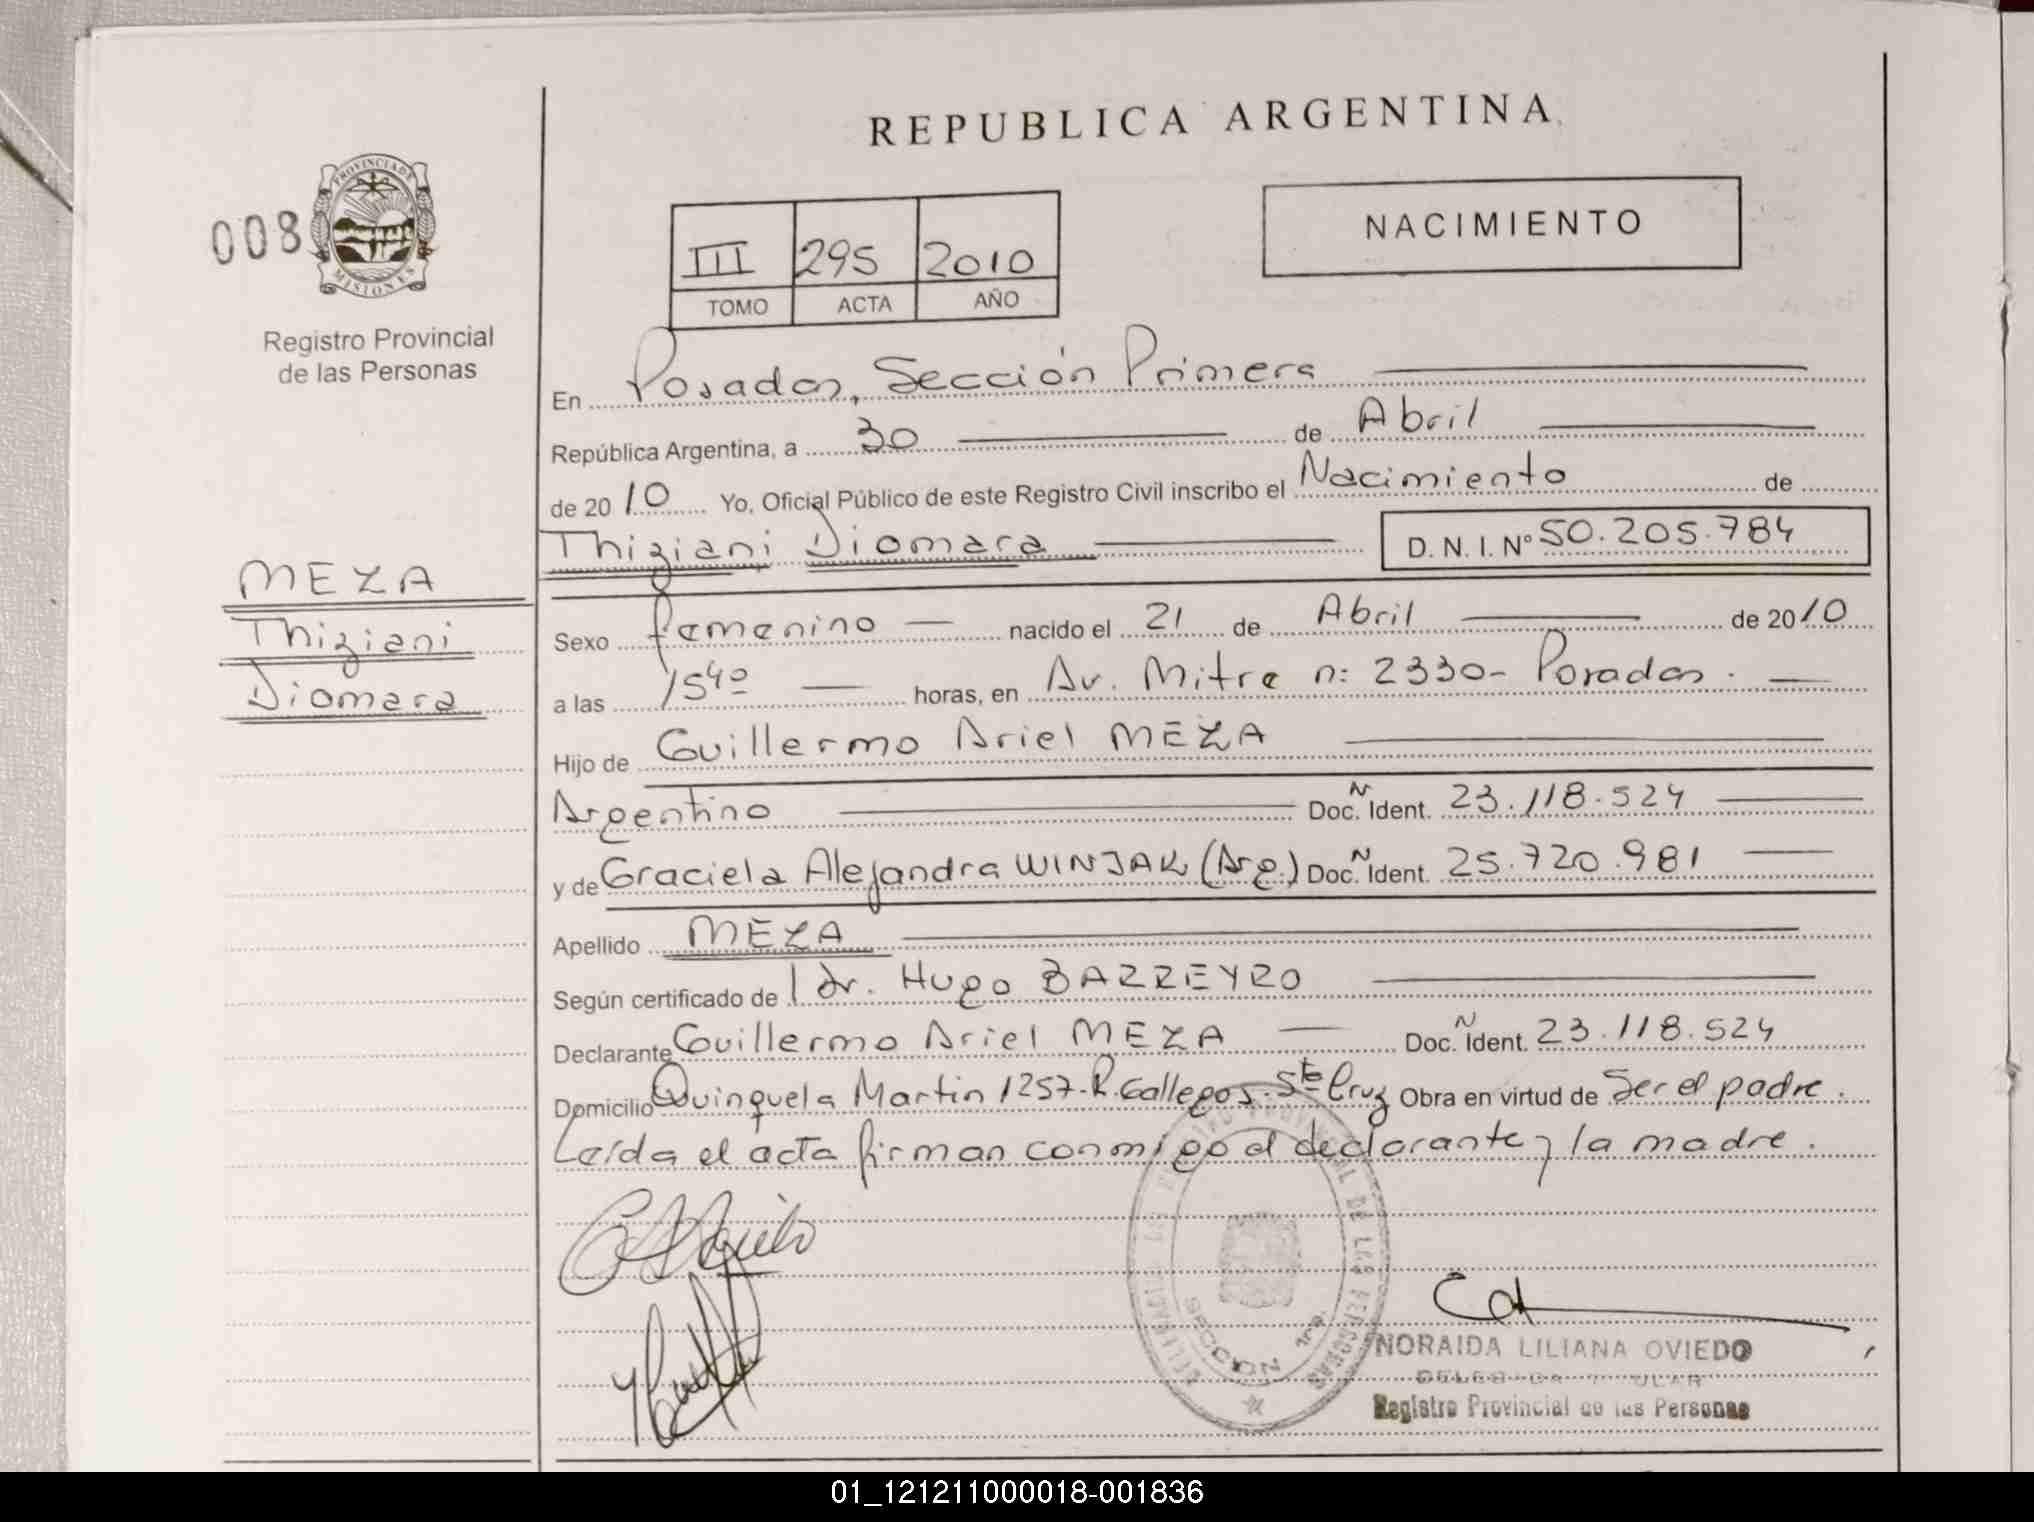 REPUBLICA ARGENTINA
NACIMIENTO
008
PROVINCIA DE MISIONES
III 295 2010
TOMO ACTA AÑO
Registro Provincial
de las Personas
En Posadas, Sección Primera
República Argentina, a 30 de Abril
de 2010 Yo, Oficial Público de este Registro Civil inscribo el Nacimiento de
Thiziani Diomara D. N. I. Nº 50.205.784
MEZA
Thiziani
Diomara
Sexo femenino nacido el 21 de Abril de 2010
a las 15⁴⁰ horas, en Av. Mitre n: 2330- Posadas.
Hijo de Guillermo Ariel MEZA
Argentino Doc. N Ident. 23.118.524
y de Graciela Alejandra WINJAK (Arg.) Doc. N Ident. 25.720.981
Apellido MEZA
Según certificado de Dr. Hugo BARREYRO
Declarante Guillermo Ariel MEZA Doc. N Ident. 23.118.524
Domicilio Quinquela Martin 1257-R. Gallegos. Sta Cruz Obra en virtud de Ser el padre.
Leída el acta firman conmigo el declarante y la madre.
PROVINCIAL DE LAS PERSONAS
SECCION 1ra.
NORAIDA LILIANA OVIEDO
DELEGADA TITULAR
Registro Provincial de las Personas
01_121211000018-001836